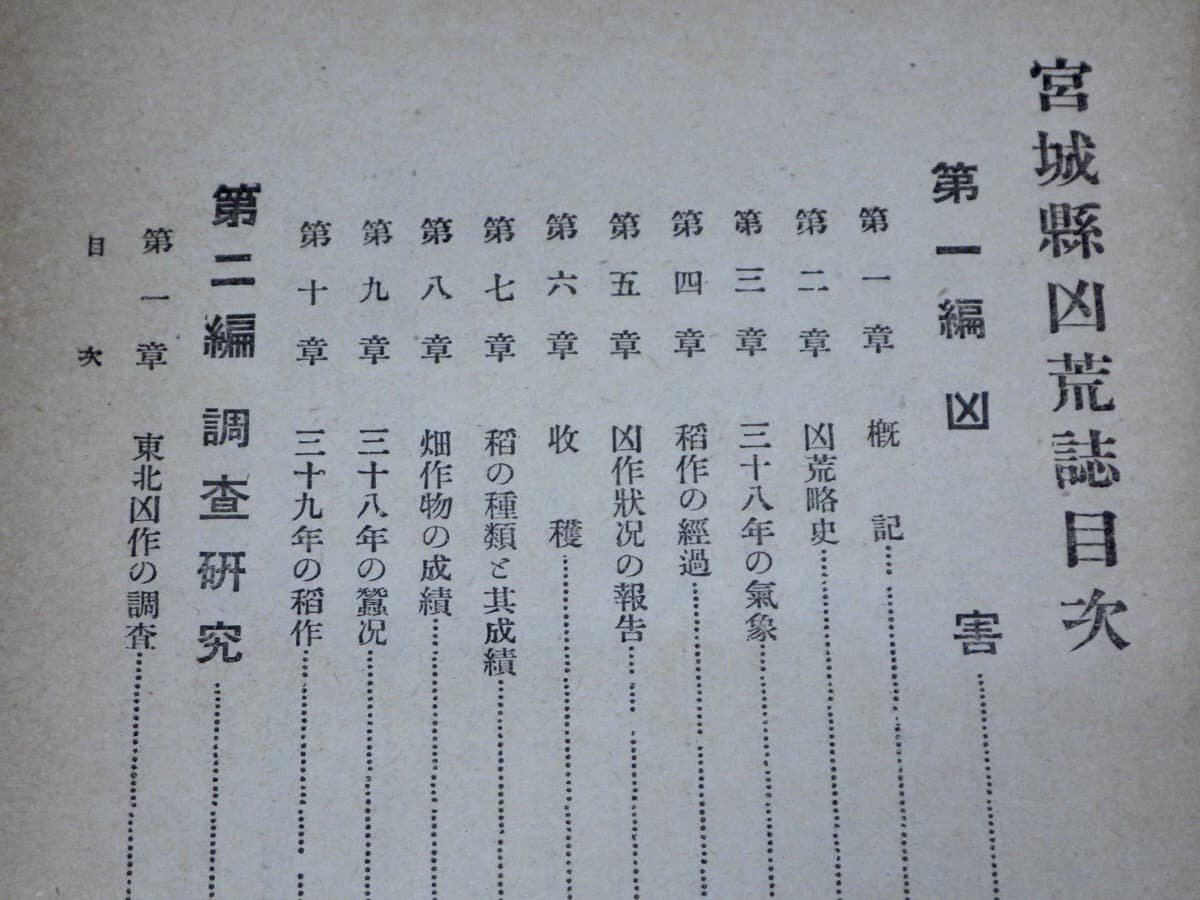 宮城縣凶荒誌目次
第一編 凶害
第一章 概記
第二章 凶荒略史
第三章 三十八年の氣象
第四章 稻作の經過
第五章 凶作狀况の報告
第六章 收穫
第七章 稻の種類と其成績
第八章 畑作物の成績
第九章 三十八年の蠶况
第十章 三十九年の稻作
第二編 調査研究
第一章 東北凶作の調査
目次